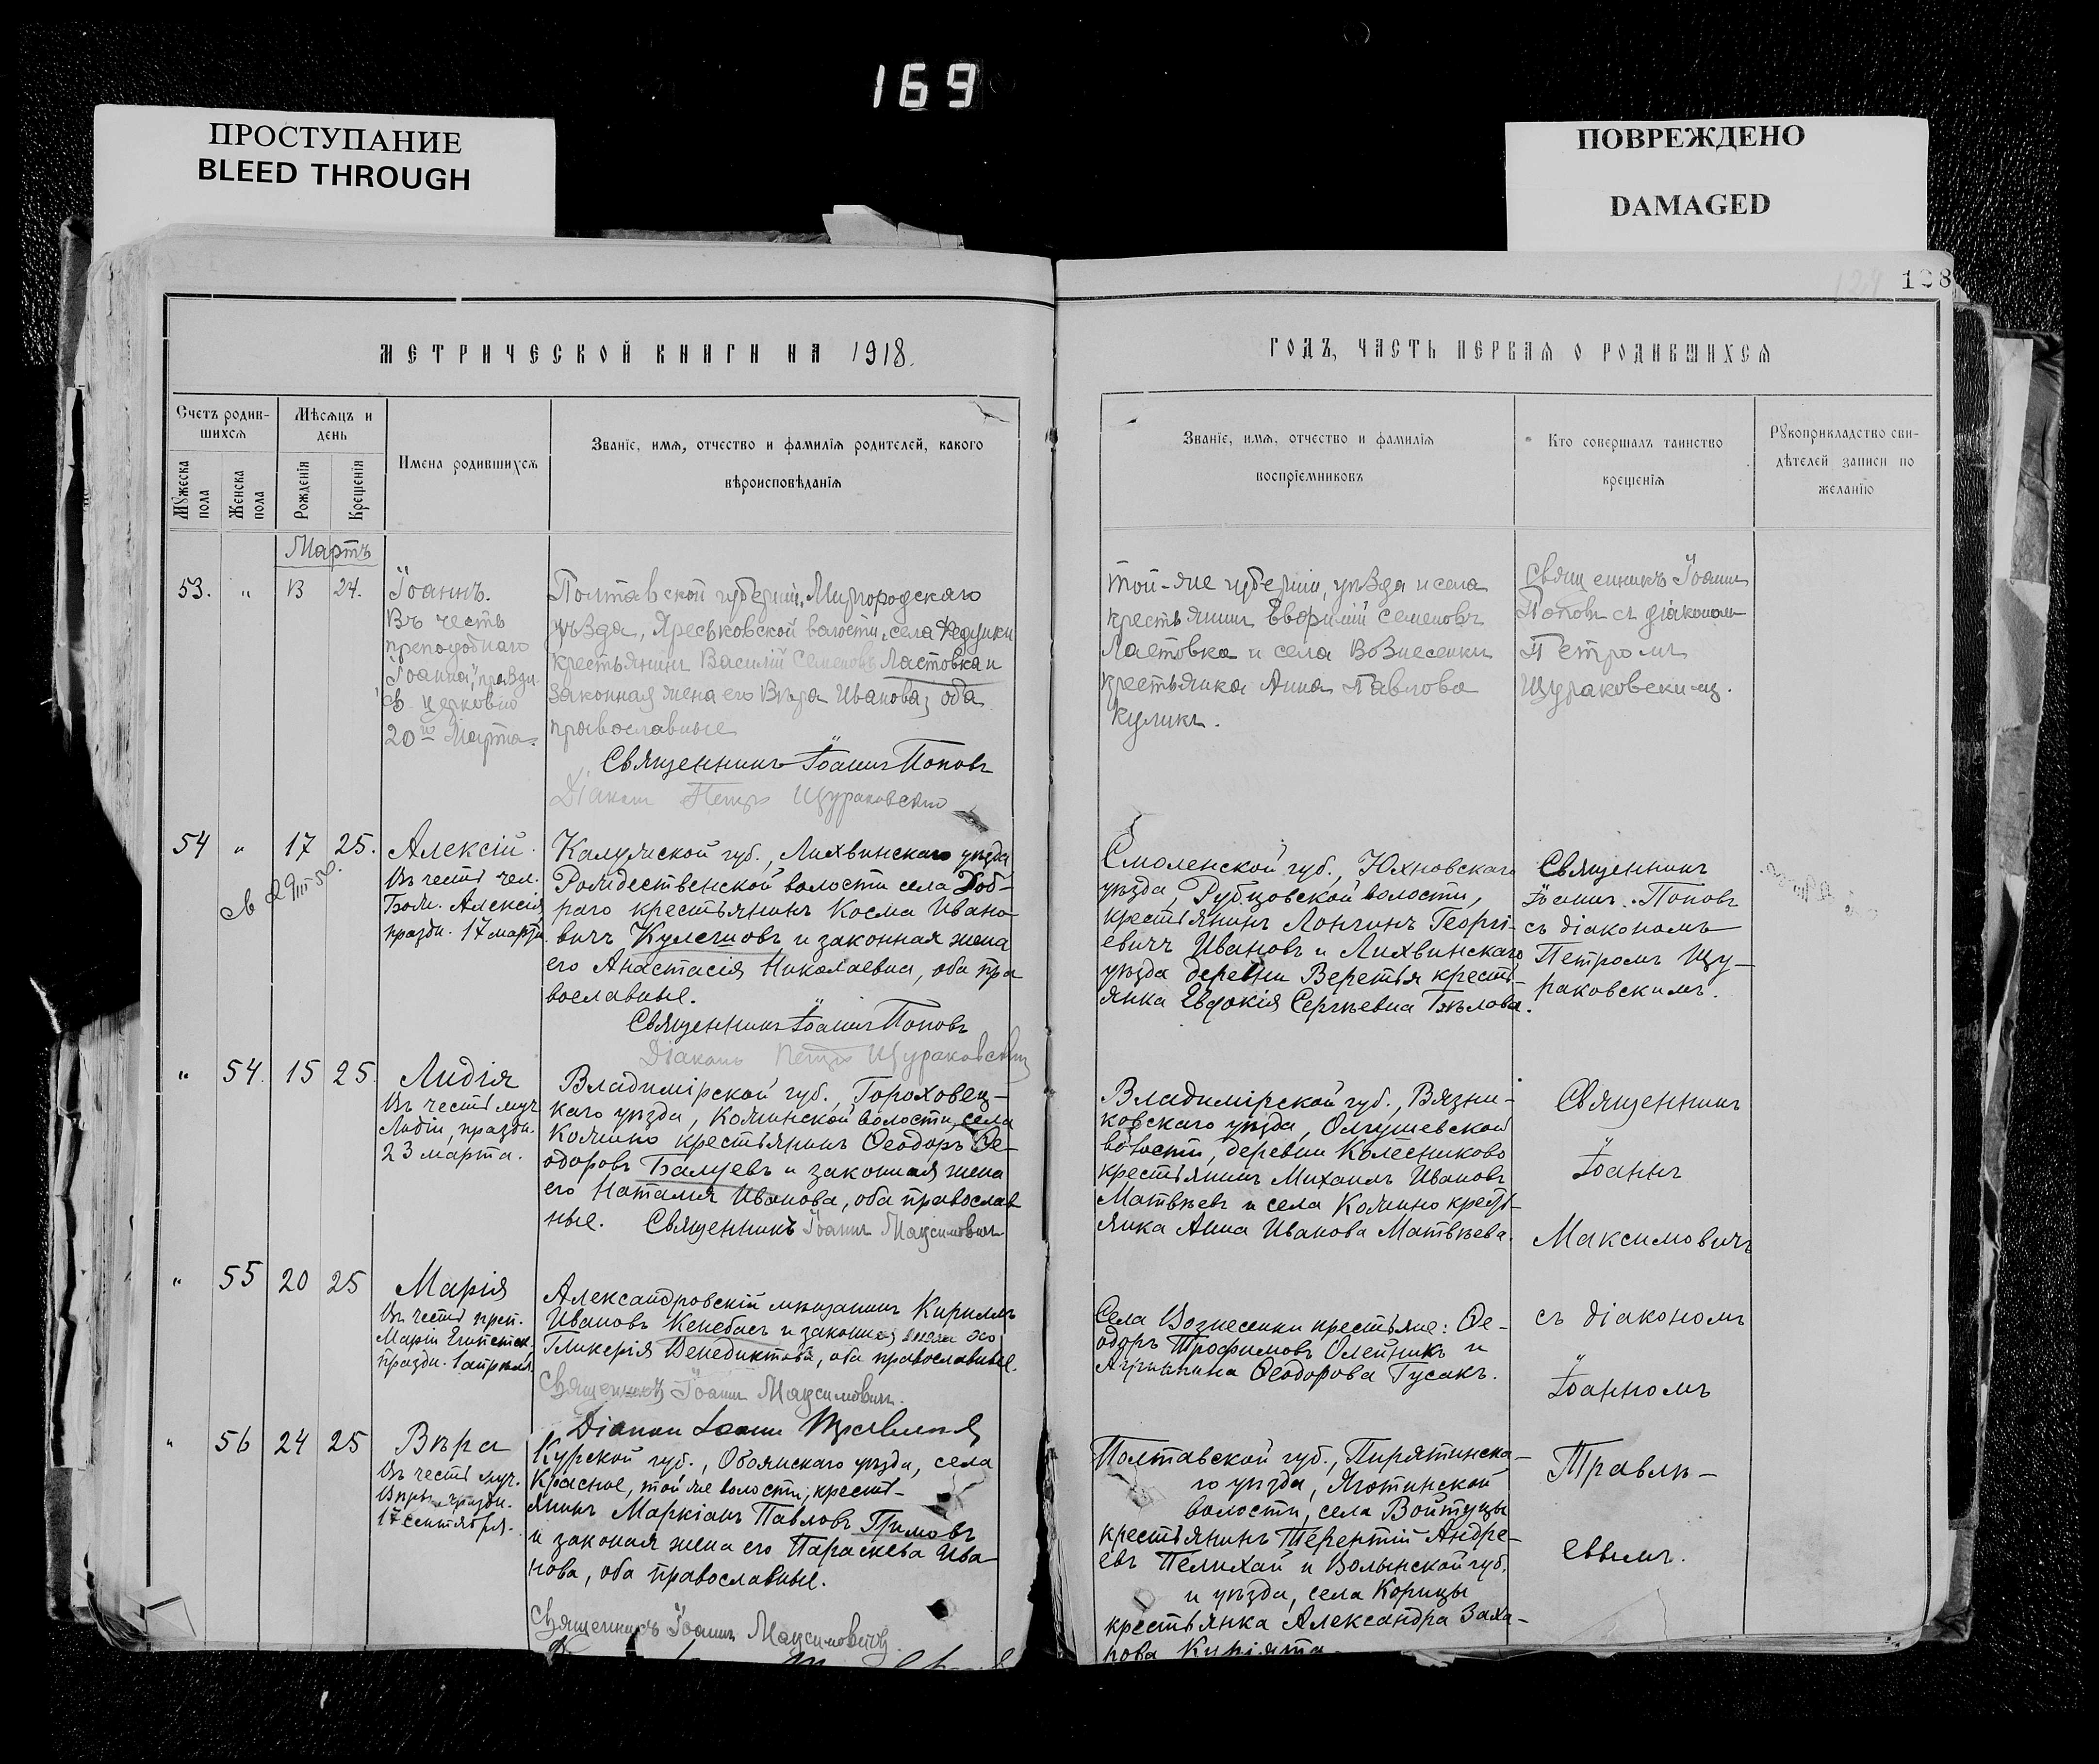 169
ПРОСТУПАНИЕ
BLEED THROUGH
ПОВРЕЖДЕНО
DAMAGED
128
МЕТРИЧЕСКОЙ КНИГИ НА 1918.
ГОДЪ, ЧАСТЬ ПЕРВАЯ О РОДИВШИХСЯ
Счетъ родив-
шихся
Мѣсяцъ и
день
Мужеска
пола
Женска
пола
Рожденія
Крещенія
Имена родившихся
Званіе, имя, отчество и фамилія родителей, какого
вѣроисповѣданія
Званіе, имя, отчество и фамилія
воспріемниковъ
Кто совершалъ таинство
крещенія
Рукоприкладство сви-
дѣтелей записи по
желанію
Мартъ
53. " 13 24.
Іоаннъ.
Въ честь
преподобнаго
Іоанна, праздн.
церковію
20го Марта.
Полтавской губерніи, Миргородскаго
уѣзда, Яреськовской волости, села Федунки
крестьянинъ Василій Семеновъ Ластовка и
законная жена его Вѣра Иванова, оба
православные
Священникъ Іоаннъ Поповъ
Діаконъ Петръ Щураковскій
той-же губерніи, уѣзда и села
крестьянинъ Евфимій Семеновъ
Ластовка и села Вознесенки
крестьянка Анна Павлова
Куликъ.
Священникъ Іоаннъ
Поповъ съ діакономъ
Петромъ
Щураковскимъ.
54 " 17 25.
Алексій.
Въ честь чел.
Бож. Алексія
праздн. 17 марта
Калужской губ., Лихвинскаго уѣзда
Рождественской волости села Доб-
раго крестьянинъ Косма Ивано-
вичъ Кулешовъ и законная жена
его Анастасія Николаевна, оба пра
вославные.
Священникъ Іоаннъ Поповъ
Діаконъ Петръ Щураковскій
Смоленской губ., Юхновскаго
уѣзда, Рубцовской волости,
крестьянинъ Лонгинъ Георгі-
евичъ Ивановъ и Лихвинскаго
уѣзда деревни Веретья кресть-
янка Евдокія Сергѣевна Бѣлова.
Священникъ
Іоаннъ Поповъ
съ діакономъ
Петромъ Щу-
раковскимъ.
" 54. 15 25.
Лидія
Въ честь муч.
Лидіи, праздн.
23 марта.
Владимірской губ., Гороховец-
каго уѣзда, Кожинской волости, села
Кожино крестьянинъ Ѳеодоръ Ѳе-
одоровъ Балуевъ и законная жена
его Наталія Иванова, оба православ
ные. Священникъ Іоаннъ Максимовичъ
Владимірской губ., Вязни-
ковскаго уѣзда, Олтушевской
волости, деревни Колесниково
крестьянинъ Михаилъ Ивановъ
Матвѣевъ и села Кожино кресть-
янка Анна Иванова Матвѣева.
Священникъ
Іоаннъ
Максимовичъ
" 55 20 25
Марія
Въ честь преп.
Маріи Египетск.
праздн. 1 апрѣля.
Александровскій мѣщанинъ Кириллъ
Ивановъ Кенебасъ и законная жена его
Гликерія Венедиктова, оба православные.
Священникъ Іоаннъ Максимовичъ.
Діаконъ Іоаннъ
Села Вознесенки крестьяне: Ѳе-
одоръ Трофимовъ Олейникъ и
Агриппина Ѳеодорова Гусакъ.
съ діакономъ
Іоанномъ
" 56 24 25
Вѣра
Въ честь муч.
Вѣры, праздн.
17 сентября.
Курской губ., Обоянскаго уѣзда, села
Красное, той же волости, кресть-
янинъ Маркіанъ Павловъ Гримовъ
и законая жена его Параскева Ива-
нова, оба православные.
Священникъ Іоаннъ Максимовичъ.
Полтавской губ., Пирятинска-
го уѣзда, Яготинской
волости, села Войтуцы
крестьянинъ Терентій Андре-
евъ Пелихай и Волынской губ.
и уѣзда, села Корицы
крестьянка Александра Заха-
рова
Травлѣ-
евымъ.